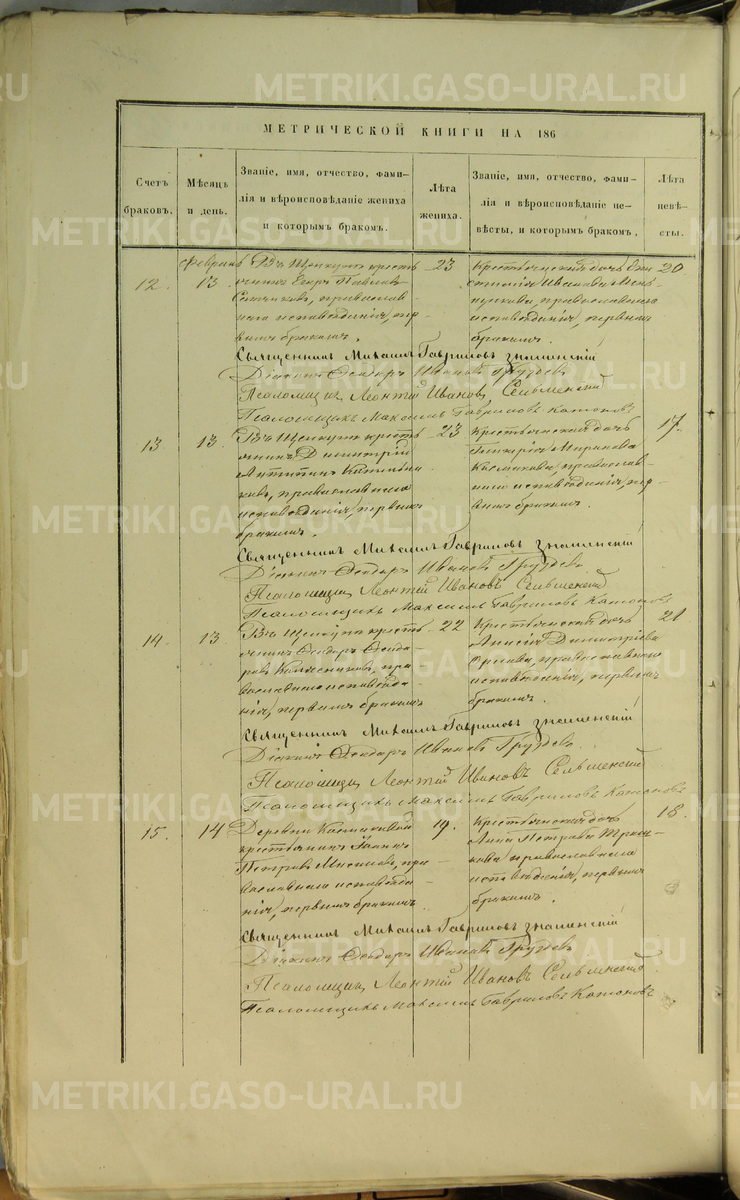 МЕТРИЧЕСКОЙ КНИГИ НА 186
Счетъ браковъ.
Мѣсяцъ и день.
Званіе, имя, отчество, фами-
лія и вѣроисповѣданіе жениха
и которымъ бракомъ.
Лѣта жениха.
Званіе, имя, отчество, фами-
лія и вѣроисповѣданіе не-
вѣсты, и которымъ бракомъ,
Лѣта невѣ-
сты.
12.
Февраль
13
крестья-
нинъ Егоръ Павловъ
православ-
наго исповѣданія, пер-
вымъ бракомъ.
23
Крестьянская дочь
Иванова
православнаго
исповѣданія, первымъ
бракомъ.
20
Священникъ Михаилъ Гавриловъ Знаменскій
Діаконъ Ѳеодоръ Ивановъ Груздевъ
Псаломщикъ Леонтій Ивановъ Сельменскій
Псаломщикъ Максимъ Гавриловъ Катоновъ
13
13.
кресть-
янинъ Димитрій
православнаго
исповѣданія, первымъ
бракомъ.
23
Крестьянская дочь
Миронова
православ-
наго исповѣданія, пер-
вымъ бракомъ.
17.
Священникъ Михаилъ Гавриловъ Знаменскій
Діаконъ Ѳеодоръ Ивановъ Груздевъ
Псаломщикъ Леонтій Ивановъ Сельменскій
Псаломщикъ Максимъ Гавриловъ Катоновъ
14.
13.
кресть-
янинъ Ѳеодоръ Ѳеодо-
ровъ пра-
вославнаго исповѣда-
нія, первымъ бракомъ
22
Крестьянская дочь
Анисія Димитріева
православнаго
исповѣданія, первымъ
бракомъ.
21
Священникъ Михаилъ Гавриловъ Знаменскій
Діаконъ Ѳеодоръ Ивановъ Груздевъ.
Псаломщикъ Леонтій Ивановъ Сельменскій
Псаломщикъ Максимъ Гавриловъ Катоновъ
15.
14
Деревни
крестьянинъ Іоаннъ
Петровъ пра-
вославнаго исповѣда-
нія, первымъ бракомъ
19.
Крестьянская дочь
Анна Петрова
православнаго
исповѣданія, первымъ
бракомъ.
18.
Священникъ Михаилъ Гавриловъ Знаменскій
Діаконъ Ѳеодоръ Ивановъ Груздевъ
Псаломщикъ Леонтій Ивановъ Сельменскій
Псаломщикъ Максимъ Гавриловъ Катоновъ
METRIKI.GASO-URAL.RU